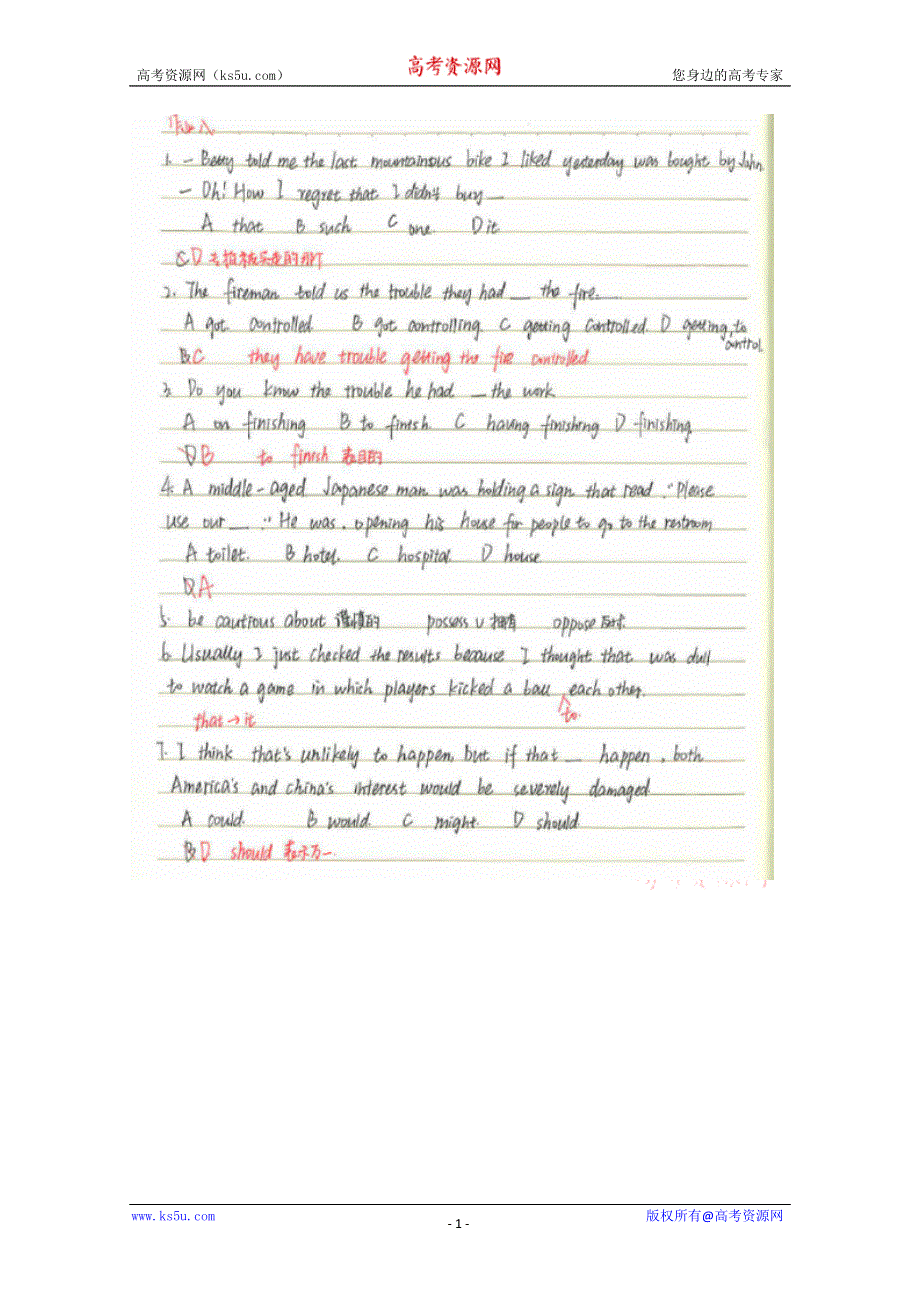 高考资源网（ks5u.com）
高考资源网
您身边的高考专家
1. — Betty told me the last mountainous bike I liked yesterday was bought by John
— Oh! How I regret that I didn't buy __
A that B such C one. D it
C D
2. The fireman told us the trouble they had __ the fire.
A got controlled B got controlling C getting controlled. D getting to control.
B C they have trouble getting the fire controlled
3. Do you know the trouble he had __ the work
A on finishing B to finish. C having finishing D finishing.
D B to finish 表目的
4. A middle-aged Japanese man was holding a sign that read. "Please
use our __ ." He was. opening his house for people to go to the restroom
A toilet. B hotel. C hospital. D house.
D A
5. be cautious about 谨慎的 possess v 拥有 oppose 反对
6. Usually I just checked the results because I thought that was dull
to watch a game in which players kicked a ball each other.
that → it to
7. I think that's unlikely to happen, but if that __ happen, both
America's and china's interest would be severely damaged
A could. B would. C might. D should.
B D should 表示万一.
www.ks5u.com
- 1 -
版权所有@高考资源网